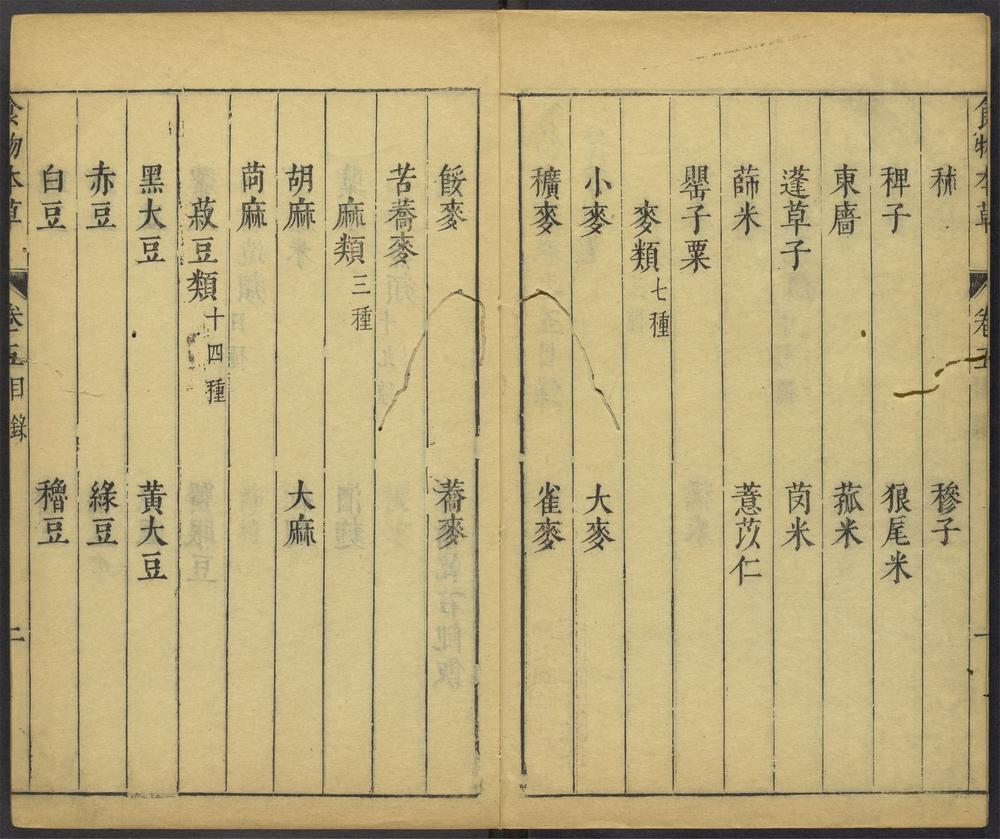 食物本草 卷五 一
秫 穇子
稗子 狼尾米
東廧 菰米
蓬草子 䒵米
薜米 薏苡仁
罌子粟
麥類七種
小麥 大麥
穬麥 雀麥
餒麥 蕎麥
苦蕎麥
麻類三種
胡麻 大麻
苘麻
菽豆類十四種
黑大豆 黃大豆
赤豆 綠豆
白豆 穭豆
食物本草 卷五目錄 二